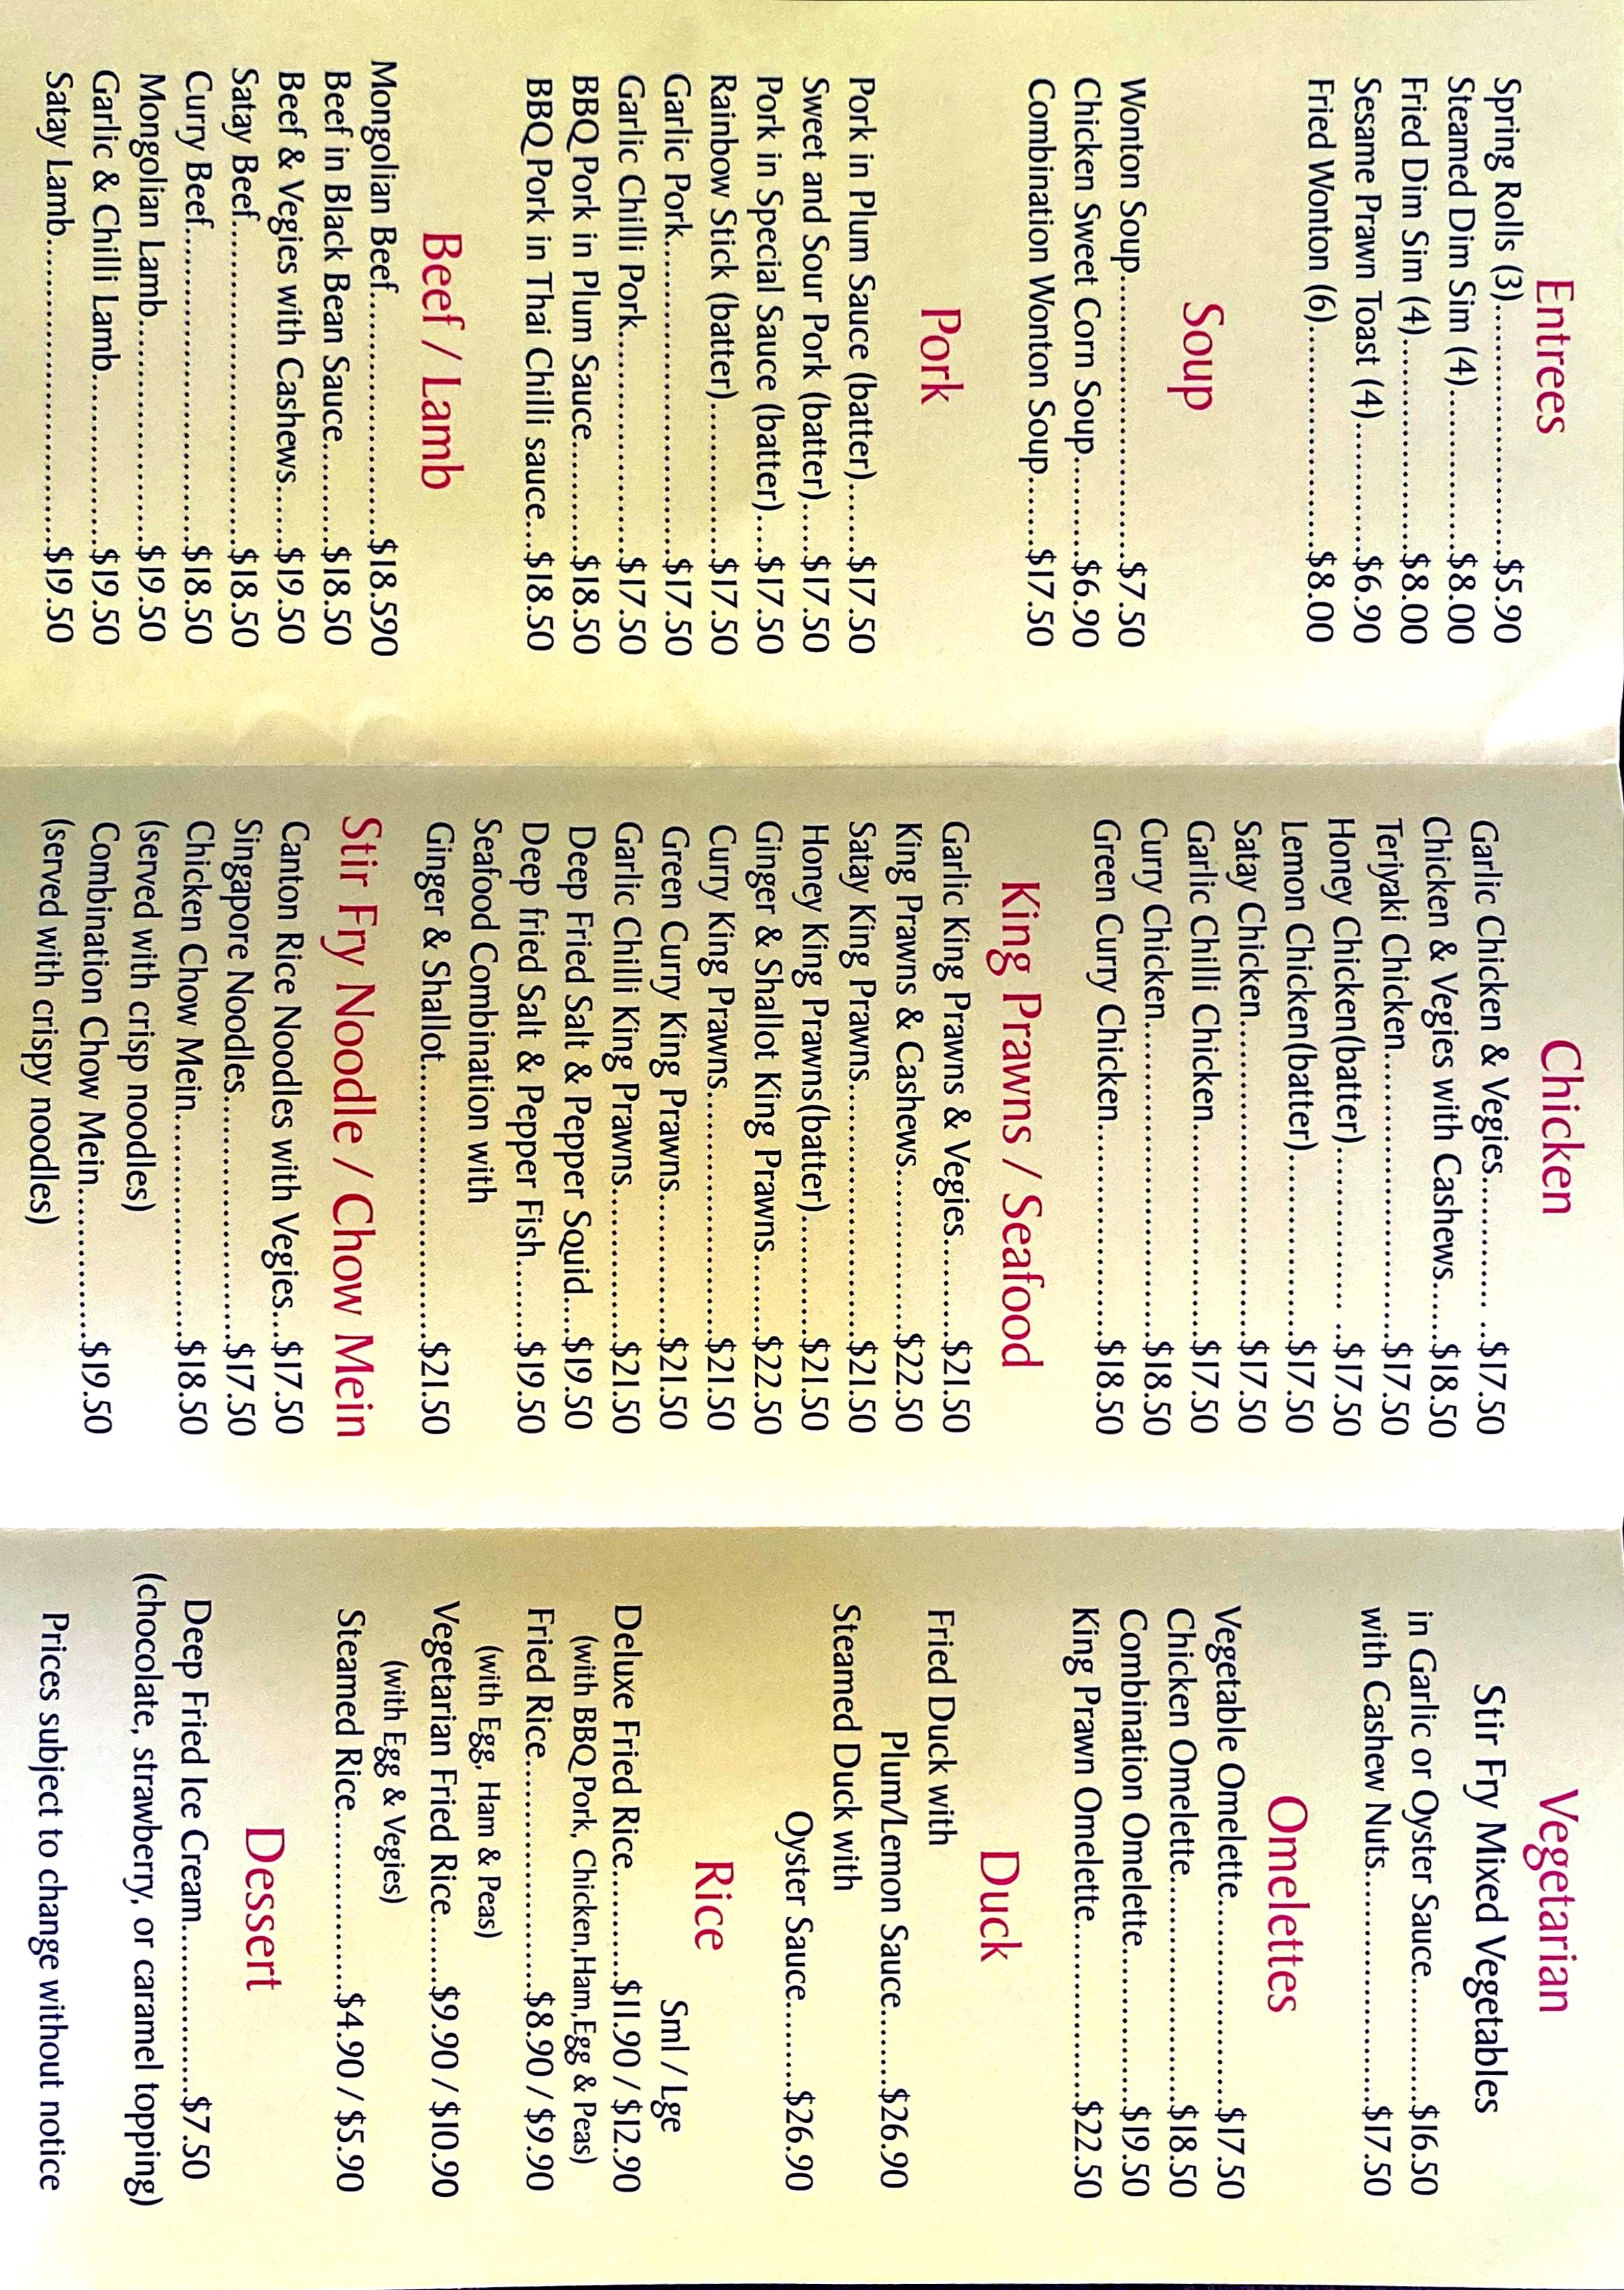 Entrees
Spring Rolls (3)..............................$5.90
Steamed Dim Sim (4)..............$8.00
Fried Dim Sim (4)......................$8.00
Sesame Prawn Toast (4)............$6.90
Fried Wonton (6).......................$8.00
Soup
Wonton Soup..............................$7.50
Chicken Sweet Corn Soup.........$6.90
Combination Wonton Soup......$17.50
Pork
Pork in Plum Sauce (batter)......$17.50
Sweet and Sour Pork (batter)....$17.50
Pork in Special Sauce (batter)...$17.50
Rainbow Stick (batter)..............$17.50
Garlic Pork.................................$17.50
Garlic Chilli Pork.......................$17.50
BBQ Pork in Plum Sauce...........$18.50
BBQ Pork in Thai Chilli sauce...$18.50
Beef / Lamb
Mongolian Beef.........................$18.590
Beef in Black Bean Sauce..........$18.50
Beef & Vegies with Cashews.....$19.50
Satay Beef..................................$18.50
Curry Beef.................................$18.50
Mongolian Lamb.......................$19.50
Garlic & Chilli Lamb..................$19.50
Satay Lamb................................$19.50
Chicken
Garlic Chicken & Vegies............... ..$17.50
Chicken & Vegies with Cashews......$18.50
Teriyaki Chicken..............................$17.50
Honey Chicken(batter)................ ..$17.50
Lemon Chicken(batter)...................$17.50
Satay Chicken..................................$17.50
Garlic Chilli Chicken.......................$17.50
Curry Chicken.................................$18.50
Green Curry Chicken.......................$18.50
King Prawns / Seafood
Garlic King Prawns & Vegies..........$21.50
King Prawns & Cashews.................$22.50
Satay King Prawns..........................$21.50
Honey King Prawns(batter)............$21.50
Ginger & Shallot King Prawns........$22.50
Curry King Prawns..........................$21.50
Green Curry King Prawns...............$21.50
Garlic Chilli King Prawns................$21.50
Deep Fried Salt & Pepper Squid...$19.50
Deep fried Salt & Pepper Fish........$19.50
Seafood Combination with
Ginger & Shallot.............................$21.50
Stir Fry Noodle / Chow Mein
Canton Rice Noodles with Vegies...$17.50
Singapore Noodles..........................$17.50
Chicken Chow Mein........................$18.50
(served with crisp noodles)
Combination Chow Mein................$19.50
(served with crispy noodles)
Vegetarian
Stir Fry Mixed Vegetables
in Garlic or Oyster Sauce.............$16.50
with Cashew Nuts........................$17.50
Omelettes
Vegetable Omelette.....................$17.50
Chicken Omelette........................$18.50
Combination Omelette................$19.50
King Prawn Omelette...................$22.50
Duck
Fried Duck with
Plum/Lemon Sauce........$26.90
Steamed Duck with
Oyster Sauce.........$26.90
Rice
Sml / Lge
Deluxe Fried Rice...........$11.90 / $12.90
(with BBQ Pork, Chicken,Ham,Egg & Peas)
Fried Rice........................$8.90 / $9.90
(with Egg, Ham & Peas)
Vegetarian Fried Rice......$9.90 / $10.90
(with Egg & Vegies)
Steamed Rice..................$4.90 / $5.90
Dessert
Deep Fried Ice Cream.................$7.50
(chocolate, strawberry, or caramel topping)
Prices subject to change without notice